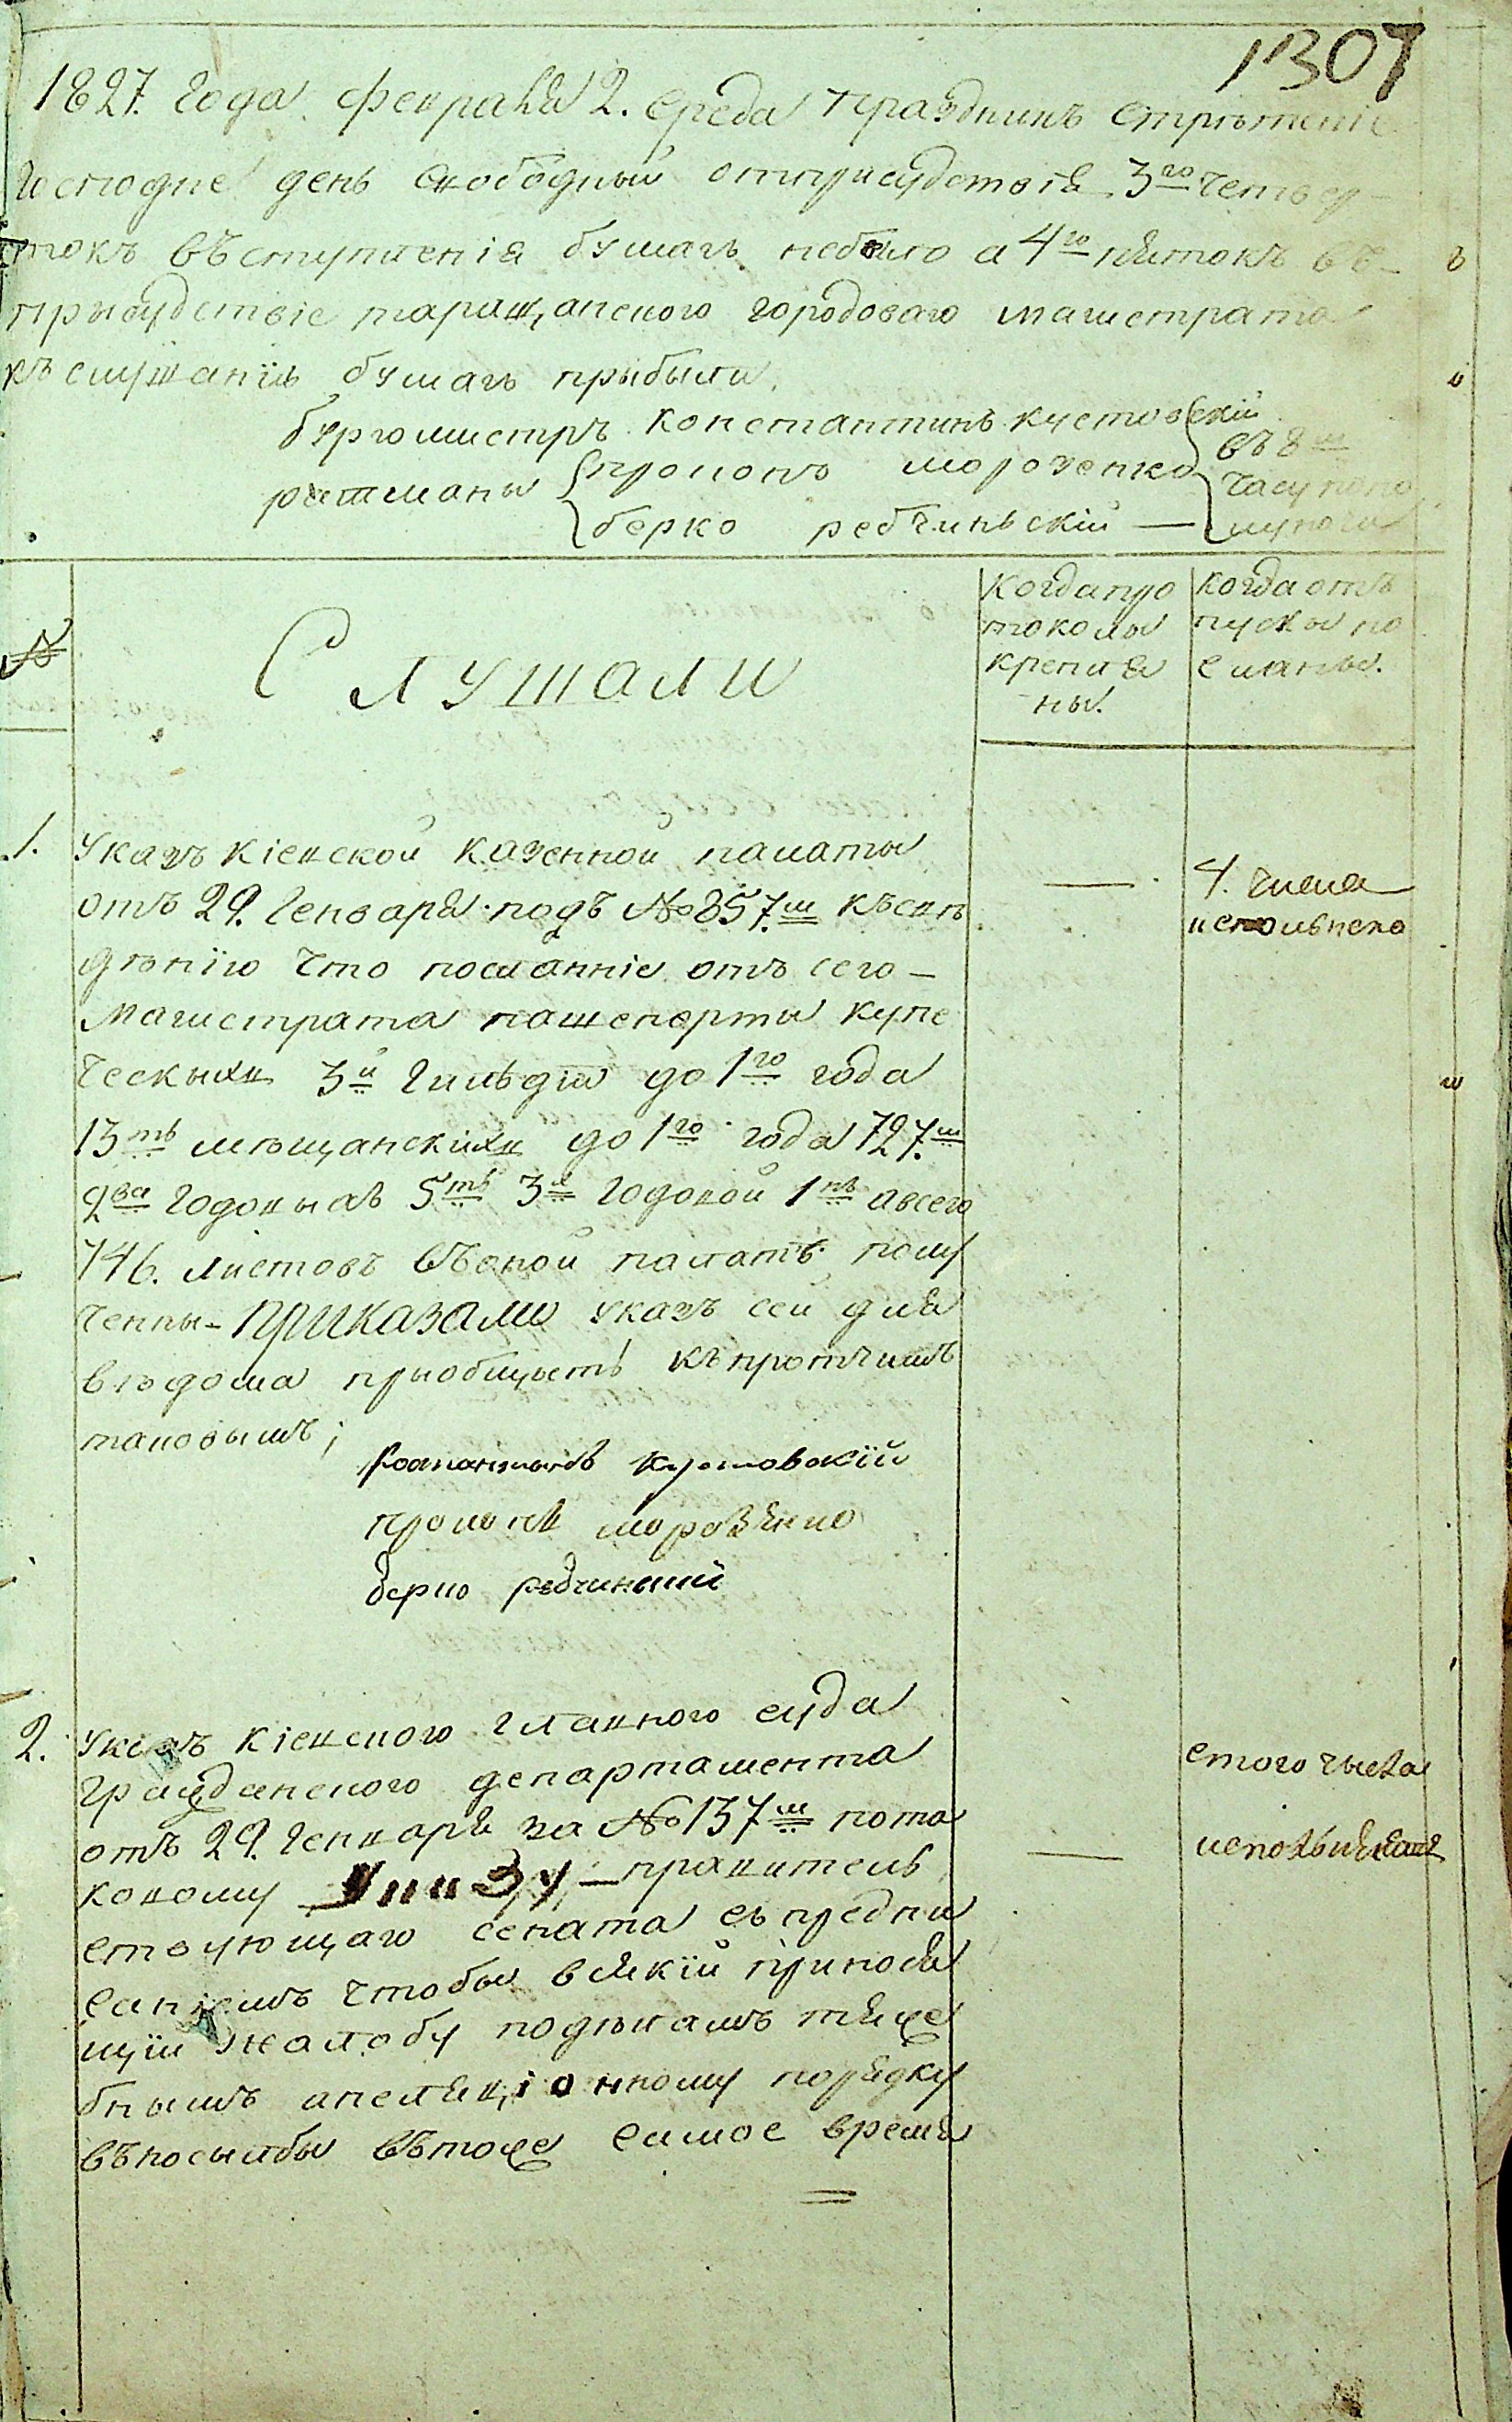 1307
1827. года февраля 2. Среда праздникъ Стрѣтеніе
Господне день свободный отприсудствія 3го четвер-
токъ въступленія бумагъ небыло а 4го пятокъ въ-
присудствіе таращанского городоваго магистрата
къ слушанію бумагъ прыбыли.
бургомистръ Константинъ кустовскій
ратманы прокопъ морозенко
берко ребчиньскій —
въ 8м
часу попо
луночи
№
Слушали
Когда про
токолы
крепле
ны.
Когда отъ
пуски по
сланы.
1. указъ кіевской казенной палаты
отъ 29. Генваря подъ №857.м къ свѣ
дѣнію что посланніе отъ сего-
магистрата пашепорты купе
ческыхъ 3й Гильдіи до 1го года
13ть мѣщанскихъ до 1го года 727.м
2ва годовыхъ 5ть 3й годовой 1нъ авсего
746. листовъ въоной палатѣ полу
ченны- приказали указъ сей для
вѣдома прыобщыть къ протчимъ
таковымъ;
— 4. числа
испольнено
Костантынъ Кустовскій
прокопъ морозенко
берко ребчинский
2. Указъ кіевского главного суда
гражданского департамента
отъ 29. Генваря за №137м пота
ковому Указу — правитель
ствующаго сената съ предпи
саніемъ чтобы всякій принося
щій жалобу подѣламъ тяже
бнымъ апеляціонному порядку
въпосылбы вътоже самое время
— етого чысла
испольняеть